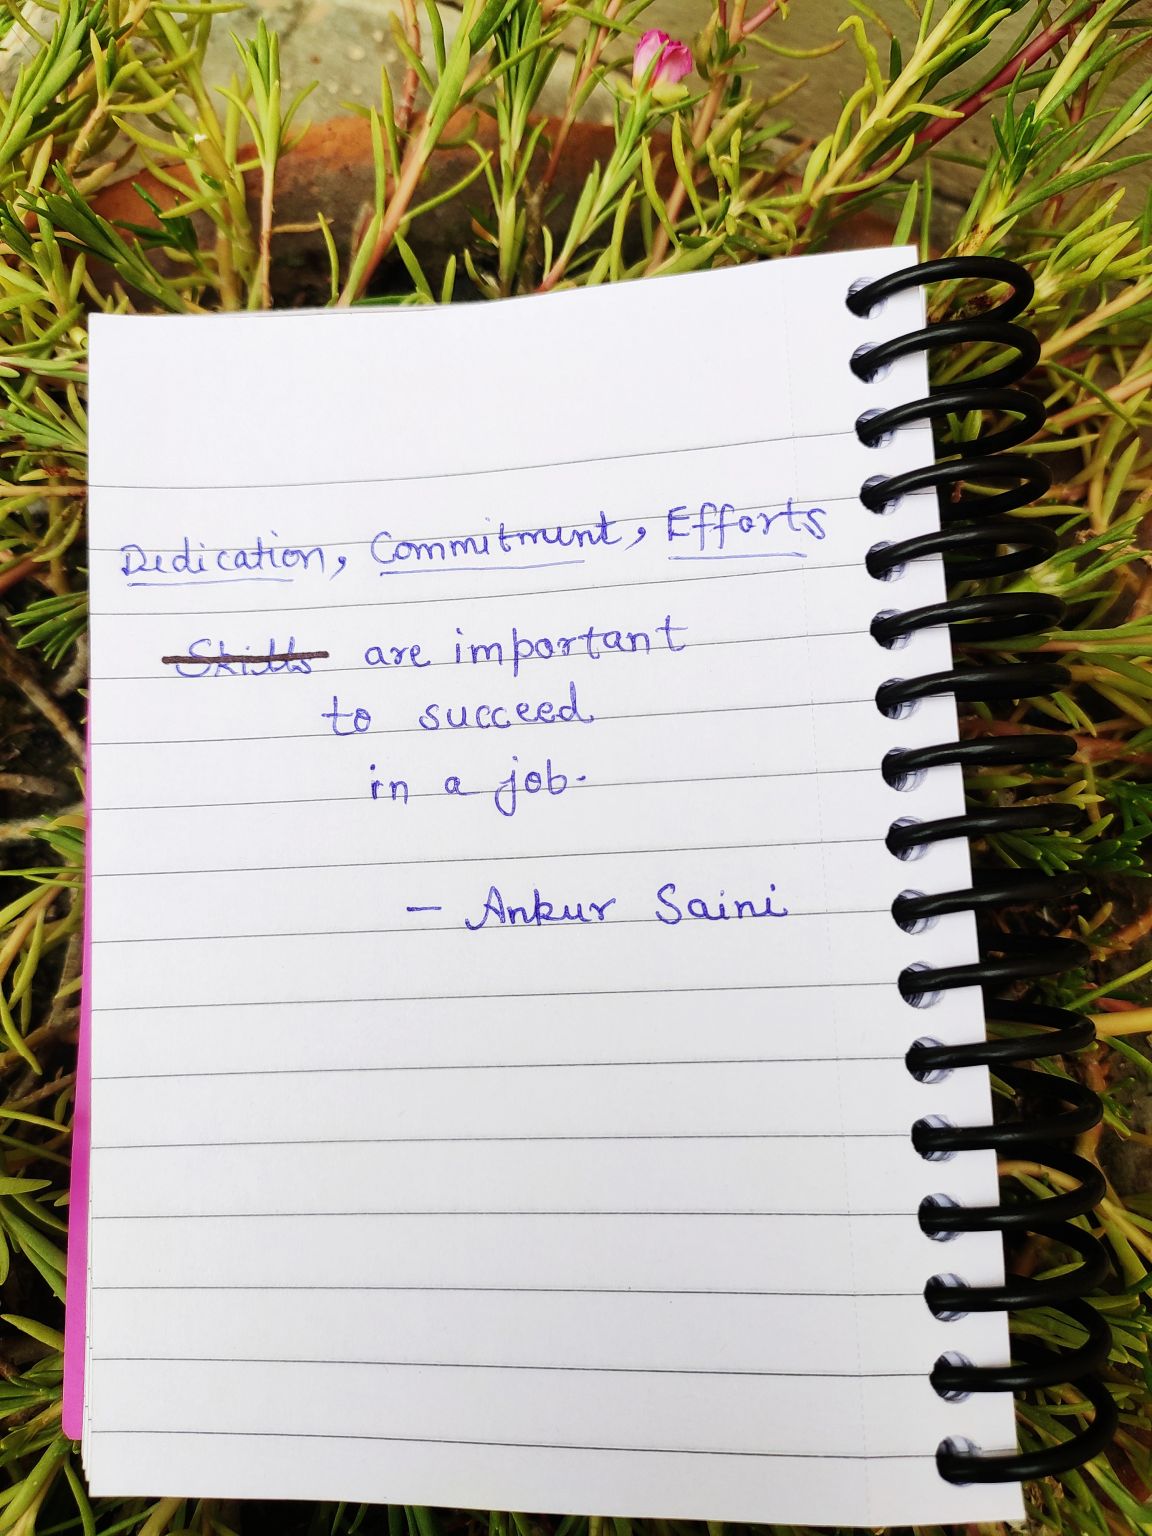 Dedication, Commitment, Efforts
Skills are important
to succeed
in a job.
- Ankur Saini